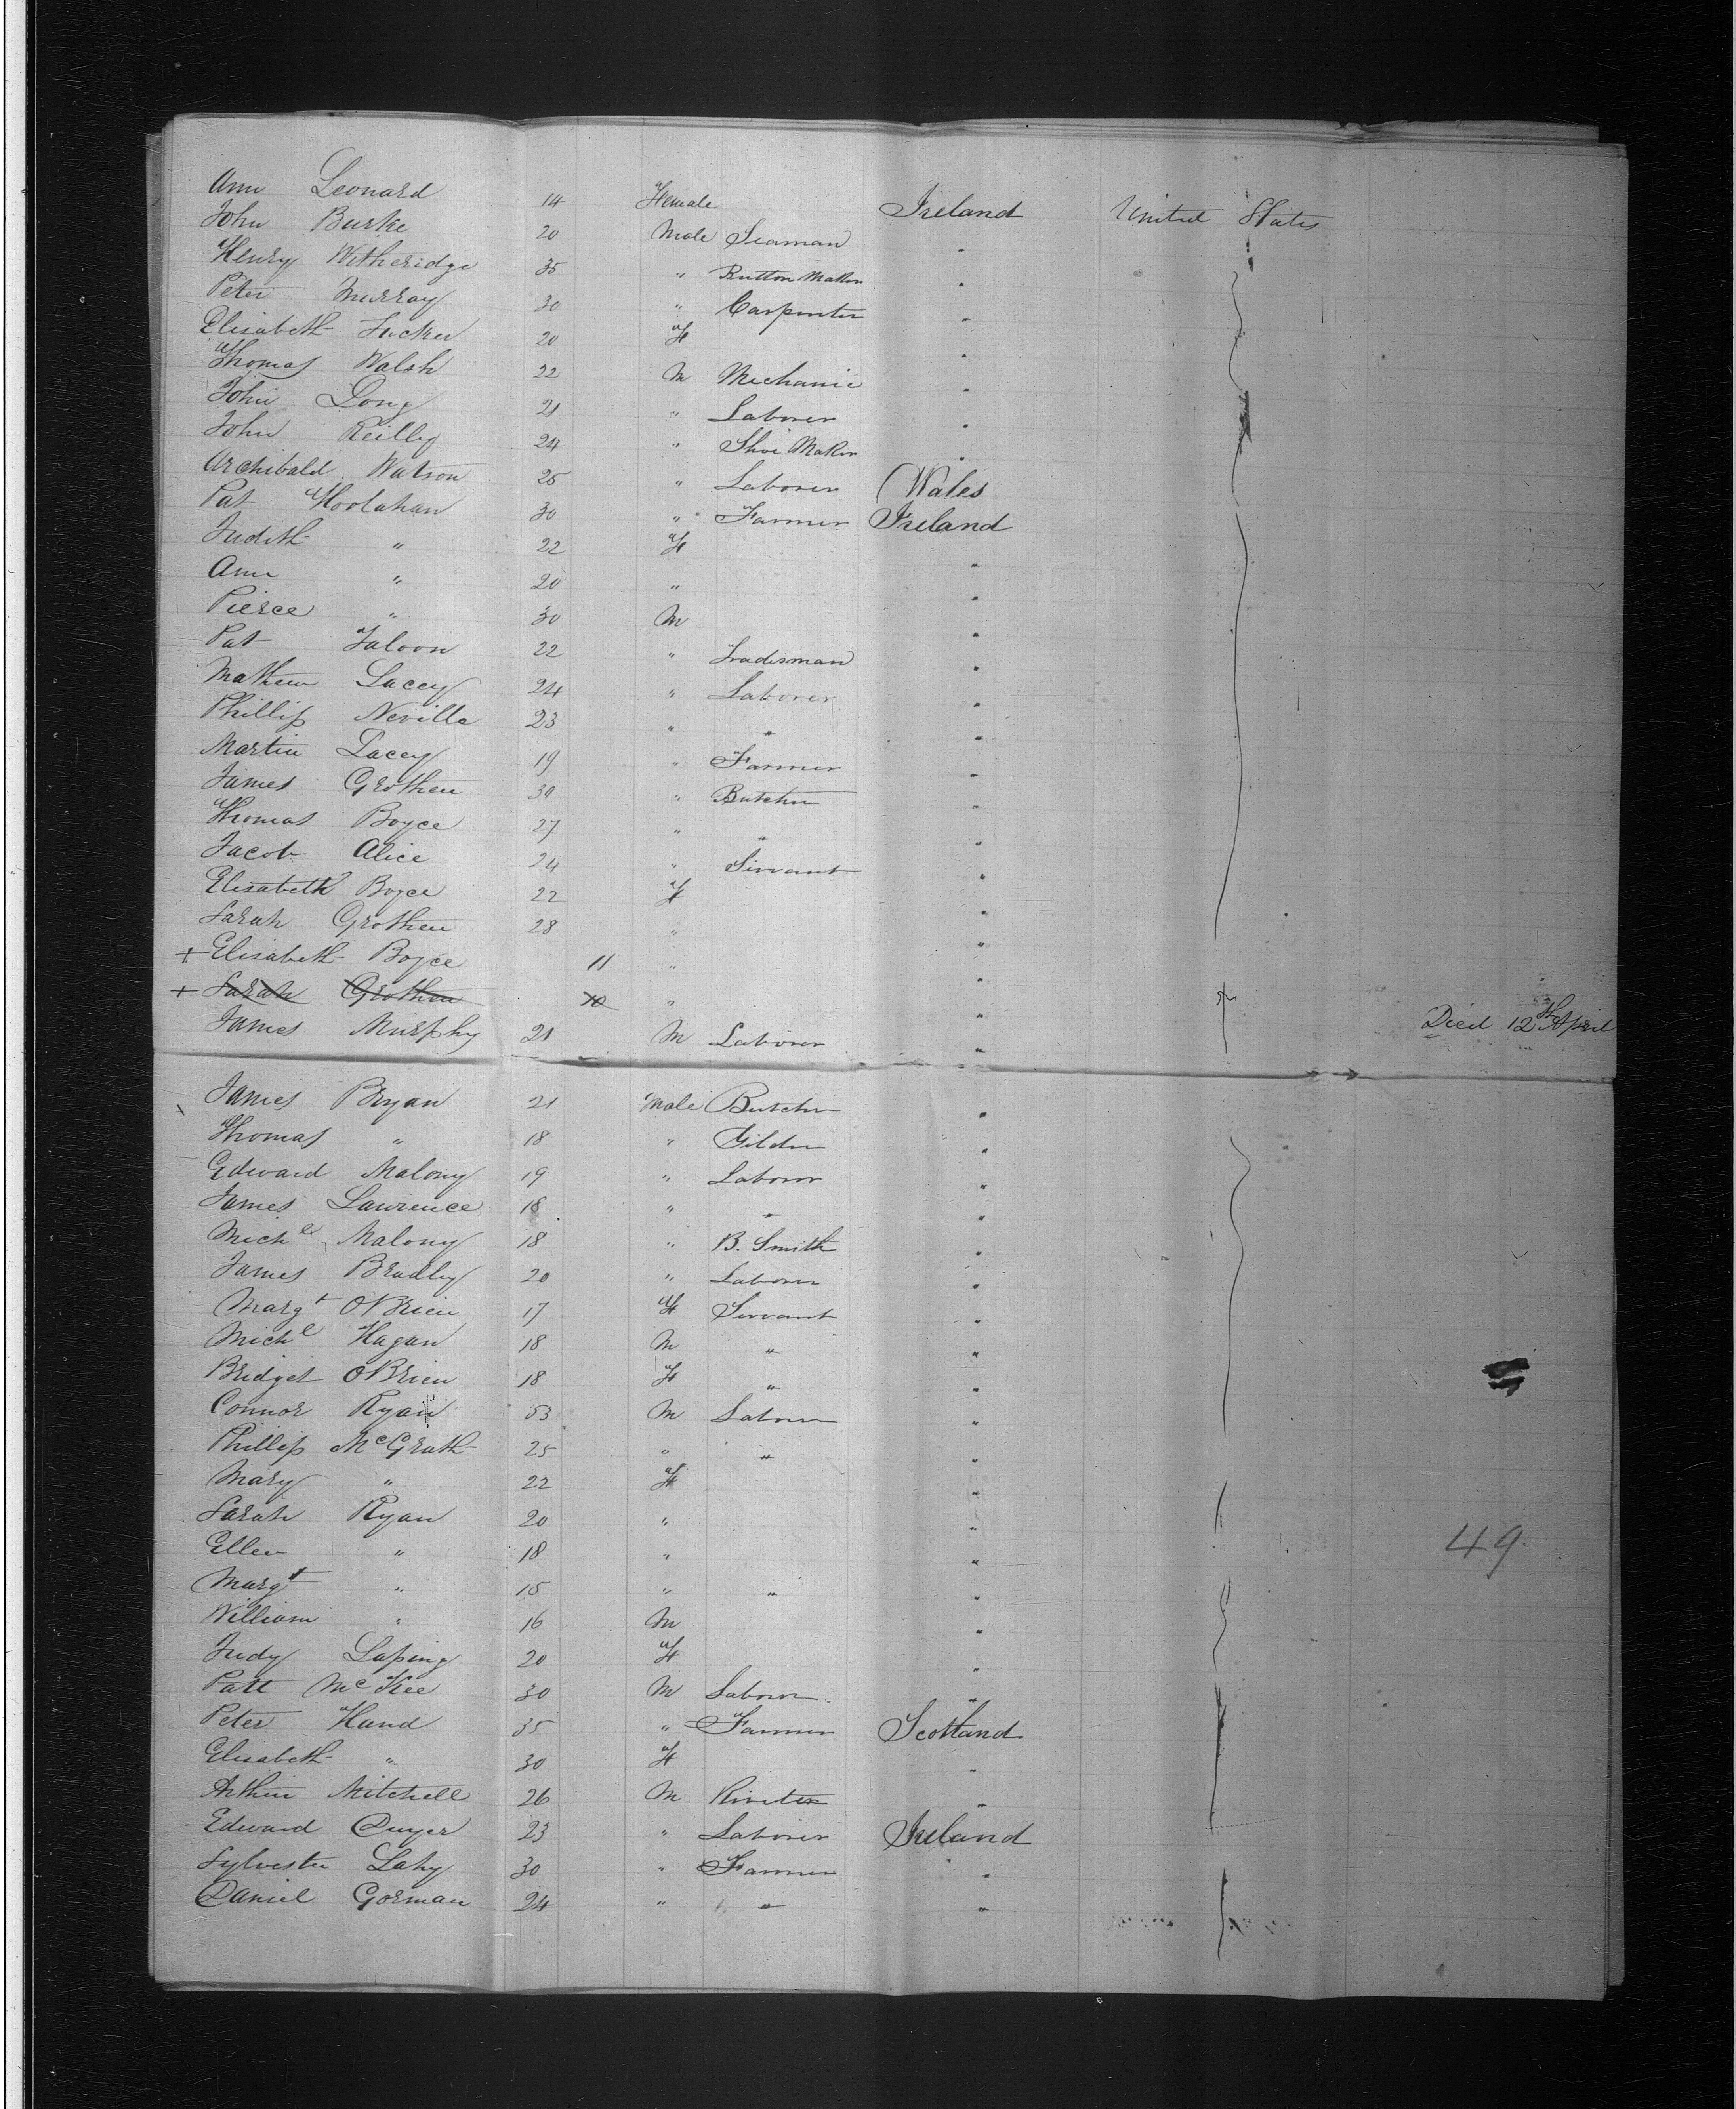 Ann Leonard 14 Female Ireland United States
John Burke 20 Male Seaman "
Henry Witheridge 35 " Button Maker "
Peter Murray 30 " Carpenter "
Elisabeth Tucker 20 F "
Thomas Walsh 22 M Mechanic "
John Long 21 " Laborer "
John Reilly 24 " Shoe Maker "
Archibald Watson 25 " Laborer Wales
Pat Hoolahan 30 " Farmer Ireland
Judith " 22 F "
Ann " 20 " "
Pierce " 30 M "
Pat Faloon 22 " Tradesman "
Mathew Lacey 24 " Laborer "
Phillip Neville 23 " " "
Martin Lacey 19 " Farmer "
James Grothen 30 " Butcher "
Thomas Boyce 27 " " "
Jacob Alice 24 " Servant "
Elisabeth Boyce 22 F "
Sarah Grothen 28 " "
+ Elisabeth Boyce 11 " "
+ Sarah Grothen 10 " " Died 12th April
James Murphy 21 M Laborer "
James Bryan 21 Male Butcher "
Thomas " 18 " Gilder "
Edward Malony 19 " Laborer "
James Lawrence 18 " " "
Michl Malony 18 " B. Smith "
James Bradley 20 " Laborer "
Margt OBrien 17 F Servant "
Michl Hagan 18 M " "
Bridget OBrien 18 F " "
Connor Ryan 53 M Laborer "
Phillip McGrath 25 " " "
Mary " 22 F "
Sarah Ryan 20 " "
Ellen " 18 " " 49
Margt " 15 " " "
William " 16 M "
Judy Laping 20 F "
Patt McKee 30 M Laborer "
Peter Hand 35 " Farmer Scotland
Elisabeth " 30 F "
Arthur Mitchell 26 M Riveter "
Edward Dwyer 23 " Laborer Ireland
Sylvester Lahy 30 " Farmer "
Daniel Gorman 24 " " "